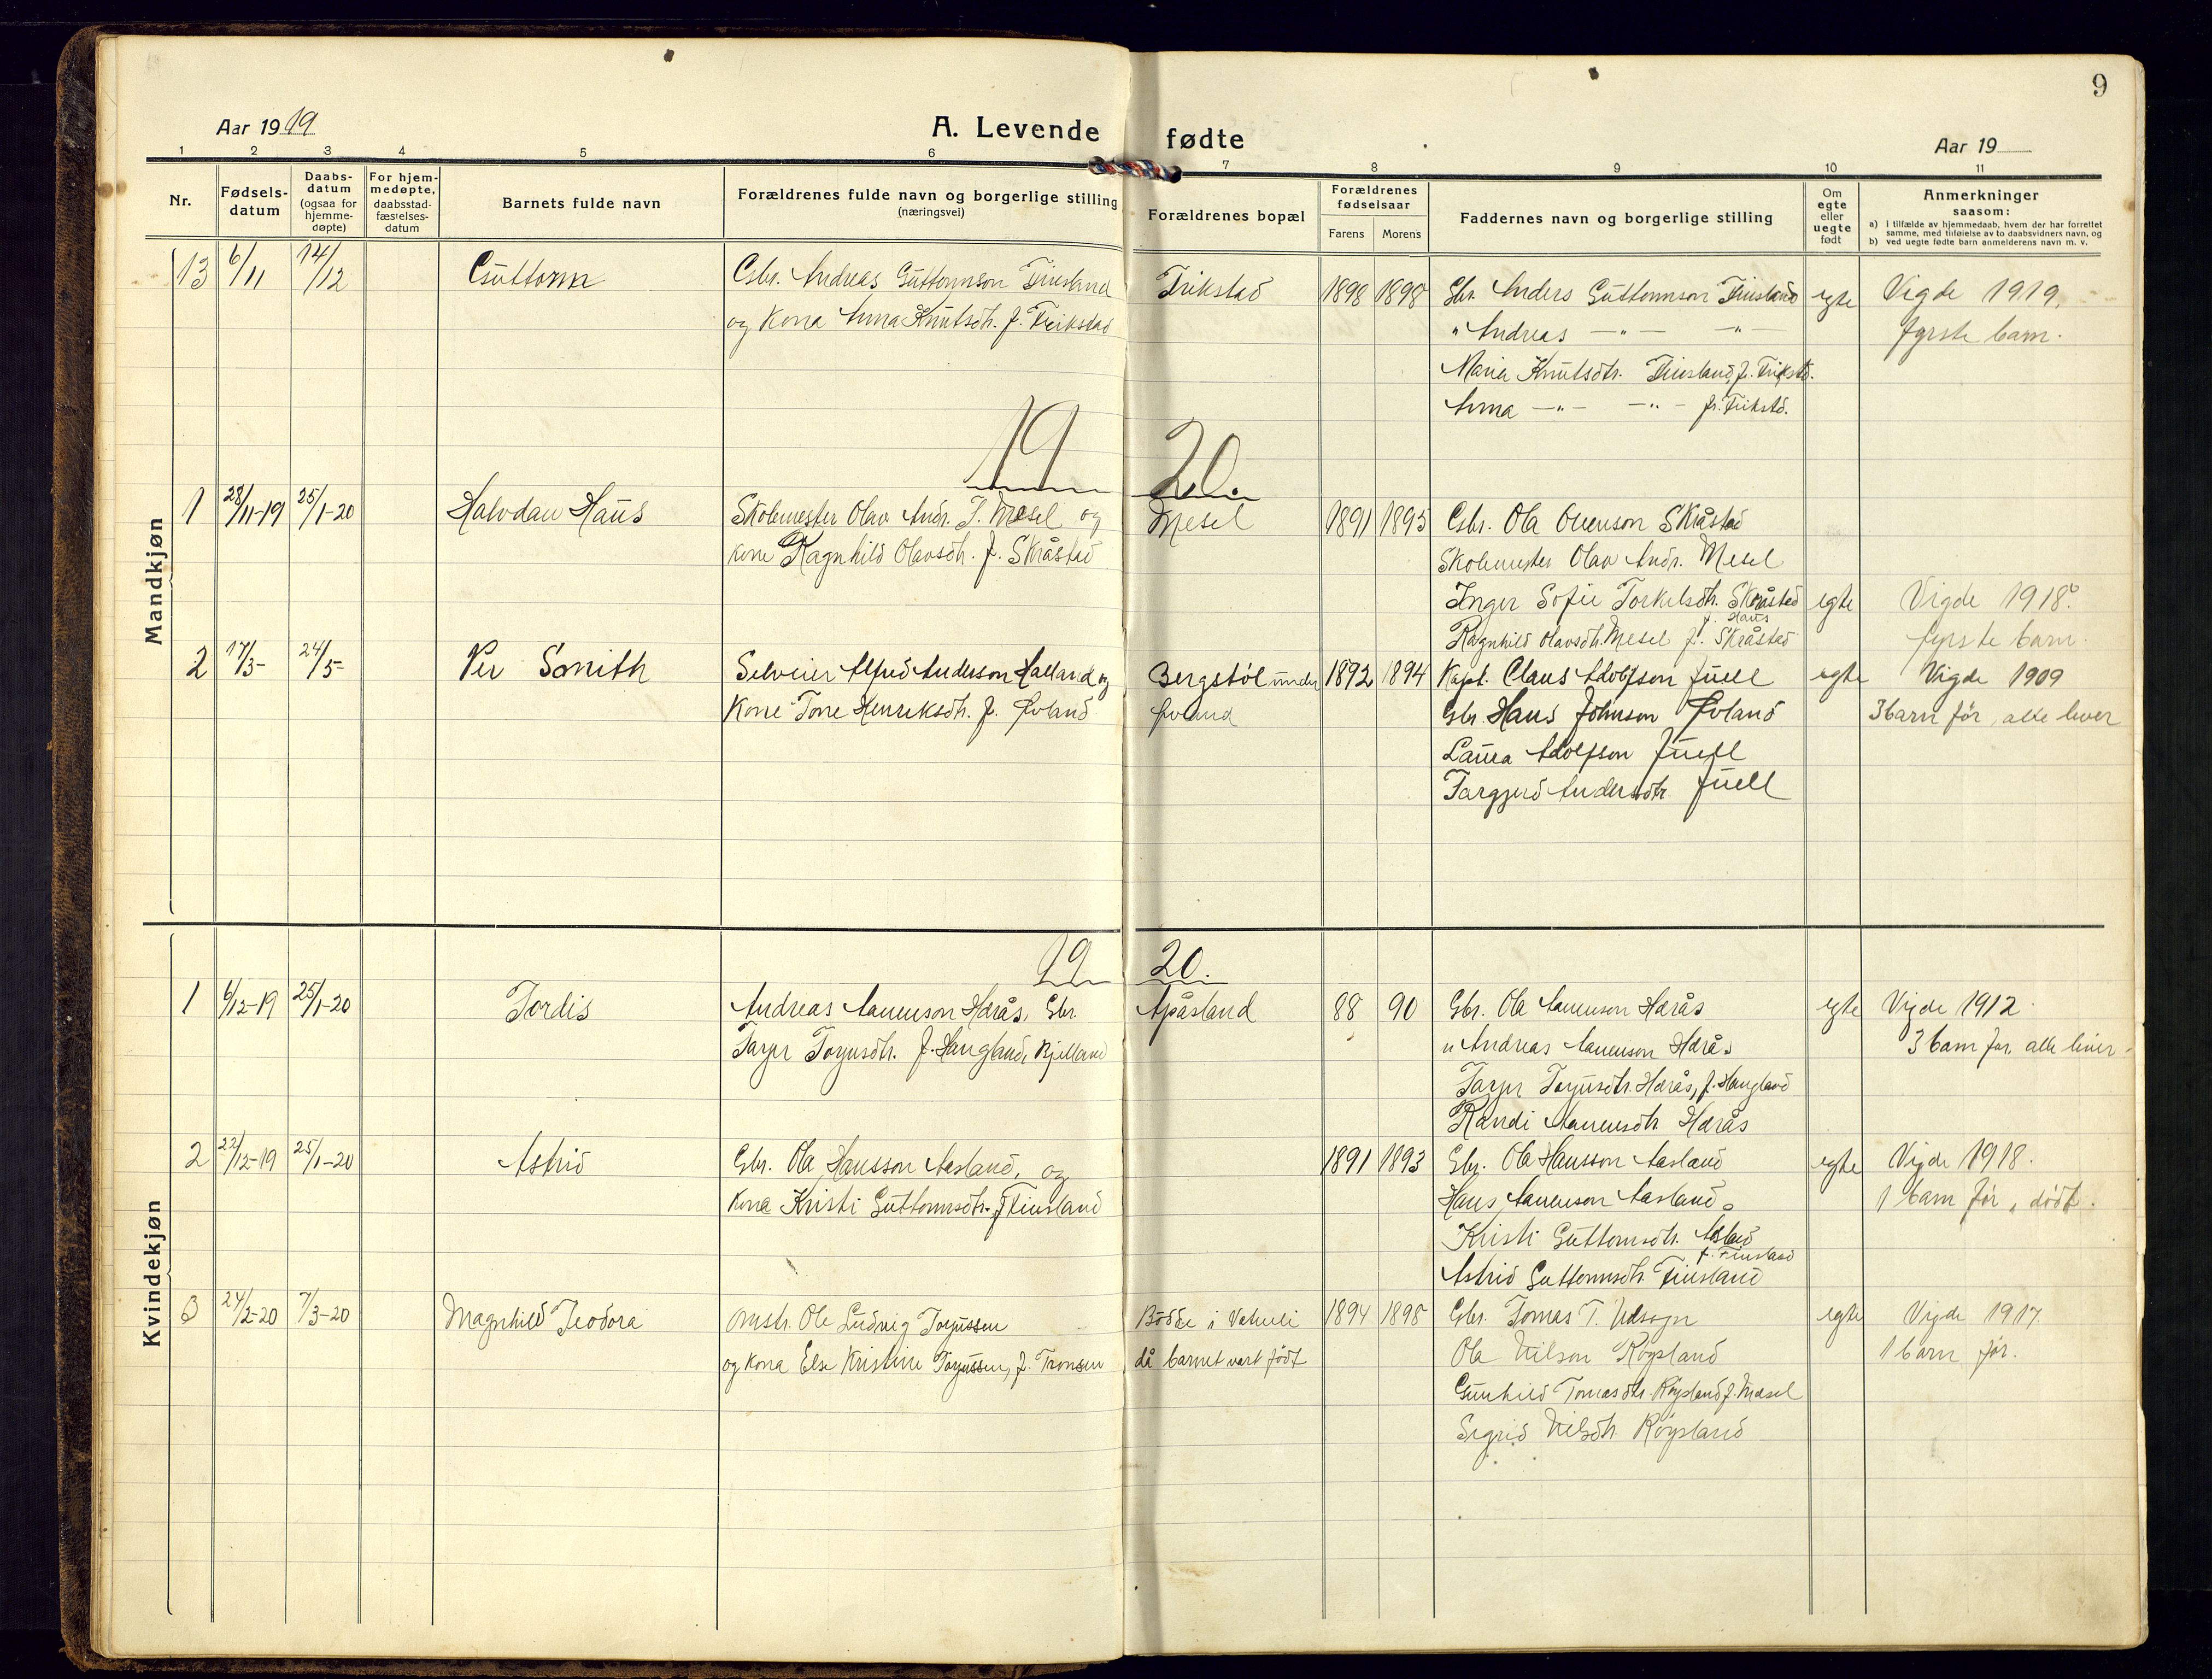 9
Aar 1919
A. Levende fødte
Aar 19
1 2 3 4 5 6 7 8 9 10 11
Nr.
Fødsels-datum
Daabs-datum (ogsaa for hjemme-døpte)
For hjem-medøpte, daabsstad-fæstelses-datum
Barnets fulde navn
Forældrenes fulde navn og borgerlige stilling (næringsvei)
Forældrenes bopæl
Forældrenes fødselsaar
Farens Morens
Faddernes navn og borgerlige stilling
Om egte eller uegte født
Anmerkninger saasom:
a) i tilfælde av hjemmedaab, hvem der har forrettet samme, med tilføielse av to daabsvidners navn, og
b) ved uegte fødte barn anmelderens navn m. v.
Mandkjøn
13 6/11 14/12 Guttorm Gbr. Andreas Guttormson Finsland Trikstad 1898 1898 Gbr. Anders Guttormson Finsland egte Vigde 1919,
og Kona Anna Knutsdtr. f. Trikstad " Andreas —"— —"— fyrste barn.
Maria Knutsdtr. Finsland, f. Trikstd.
Anna —"— —"— f. Trikstd.
19 20.
1 28/11-19 25/1-20 Halvdan Haus Skolemester Olav Andr. T. Mesel og Mesel 1891 1895 Gbr. Ola Ovenson Skråstad
kone Ragnhild Olavsdtr. f. Skråstad Skolemester Olav Andr. Mesel
Inger Sofie Torkelsdtr. Skråstad egte Vigde 1918.
f. Haus
Ragnhild Olavsdtr. Mesel f. Skråstad fyrste barn.
2 17/3- 24/5- Per Smith Selveier Alfred Anderson Halland og Bergstøl under 1892 1894 Kapt. Claus Adolfson Juell egte Vigde 1909
Kone Tone Henreksdtr. f. Øvland Øvland Gbr. Hans Johnson Øvland 3 barn før, alle lever
Laura Adolfson Juell
Targjerd Andersdtr. Juell
Kvindekjøn
19 20.
1 6/12-19 25/1-20 Tordis Andreas Aanenson Hårås, Gbr. Apåsland 88 90 Gbr. Ola Aanenson Hårås egte Vigde 1912
Tarjer Torjusdtr. f. Haugland, Bjelland " Andreas Aanenson Hårås 3 barn før, alle lever.
Tarjer Torjusdtr. Hårås, f. Haugland
Randi Aanensdtr Hårås
2 22/12-19 25/1-20 Astrid Gbr. Ola Hansson Aasland, og 1891 1893 Gbr. Ola Hansson Aasland egte Vigde 1918.
Kona Kristi Guttormsdtr. f. Finsland Hans Aanenson Aasland 1 barn før, dødt.
Kristi Guttormsdtr. Aasland
f. Finsland
Astrid Guttormsdtr. Finsland
3 24/2-20 7/3-20 Magnhild Teodora Ole Ludvig Torjussen Budde i Vatneli 1894 1898 Gbr. Tomas T. Udsogn egte Vigde 1917.
og Kona Else Kristine Torjussen, f. Tronsen då barnet vart født Ola Nilson Røysland 1 barn før.
Gunhild Tomasdtr. Røysland f. Mesel
Sigrid Nilsdtr. Røysland